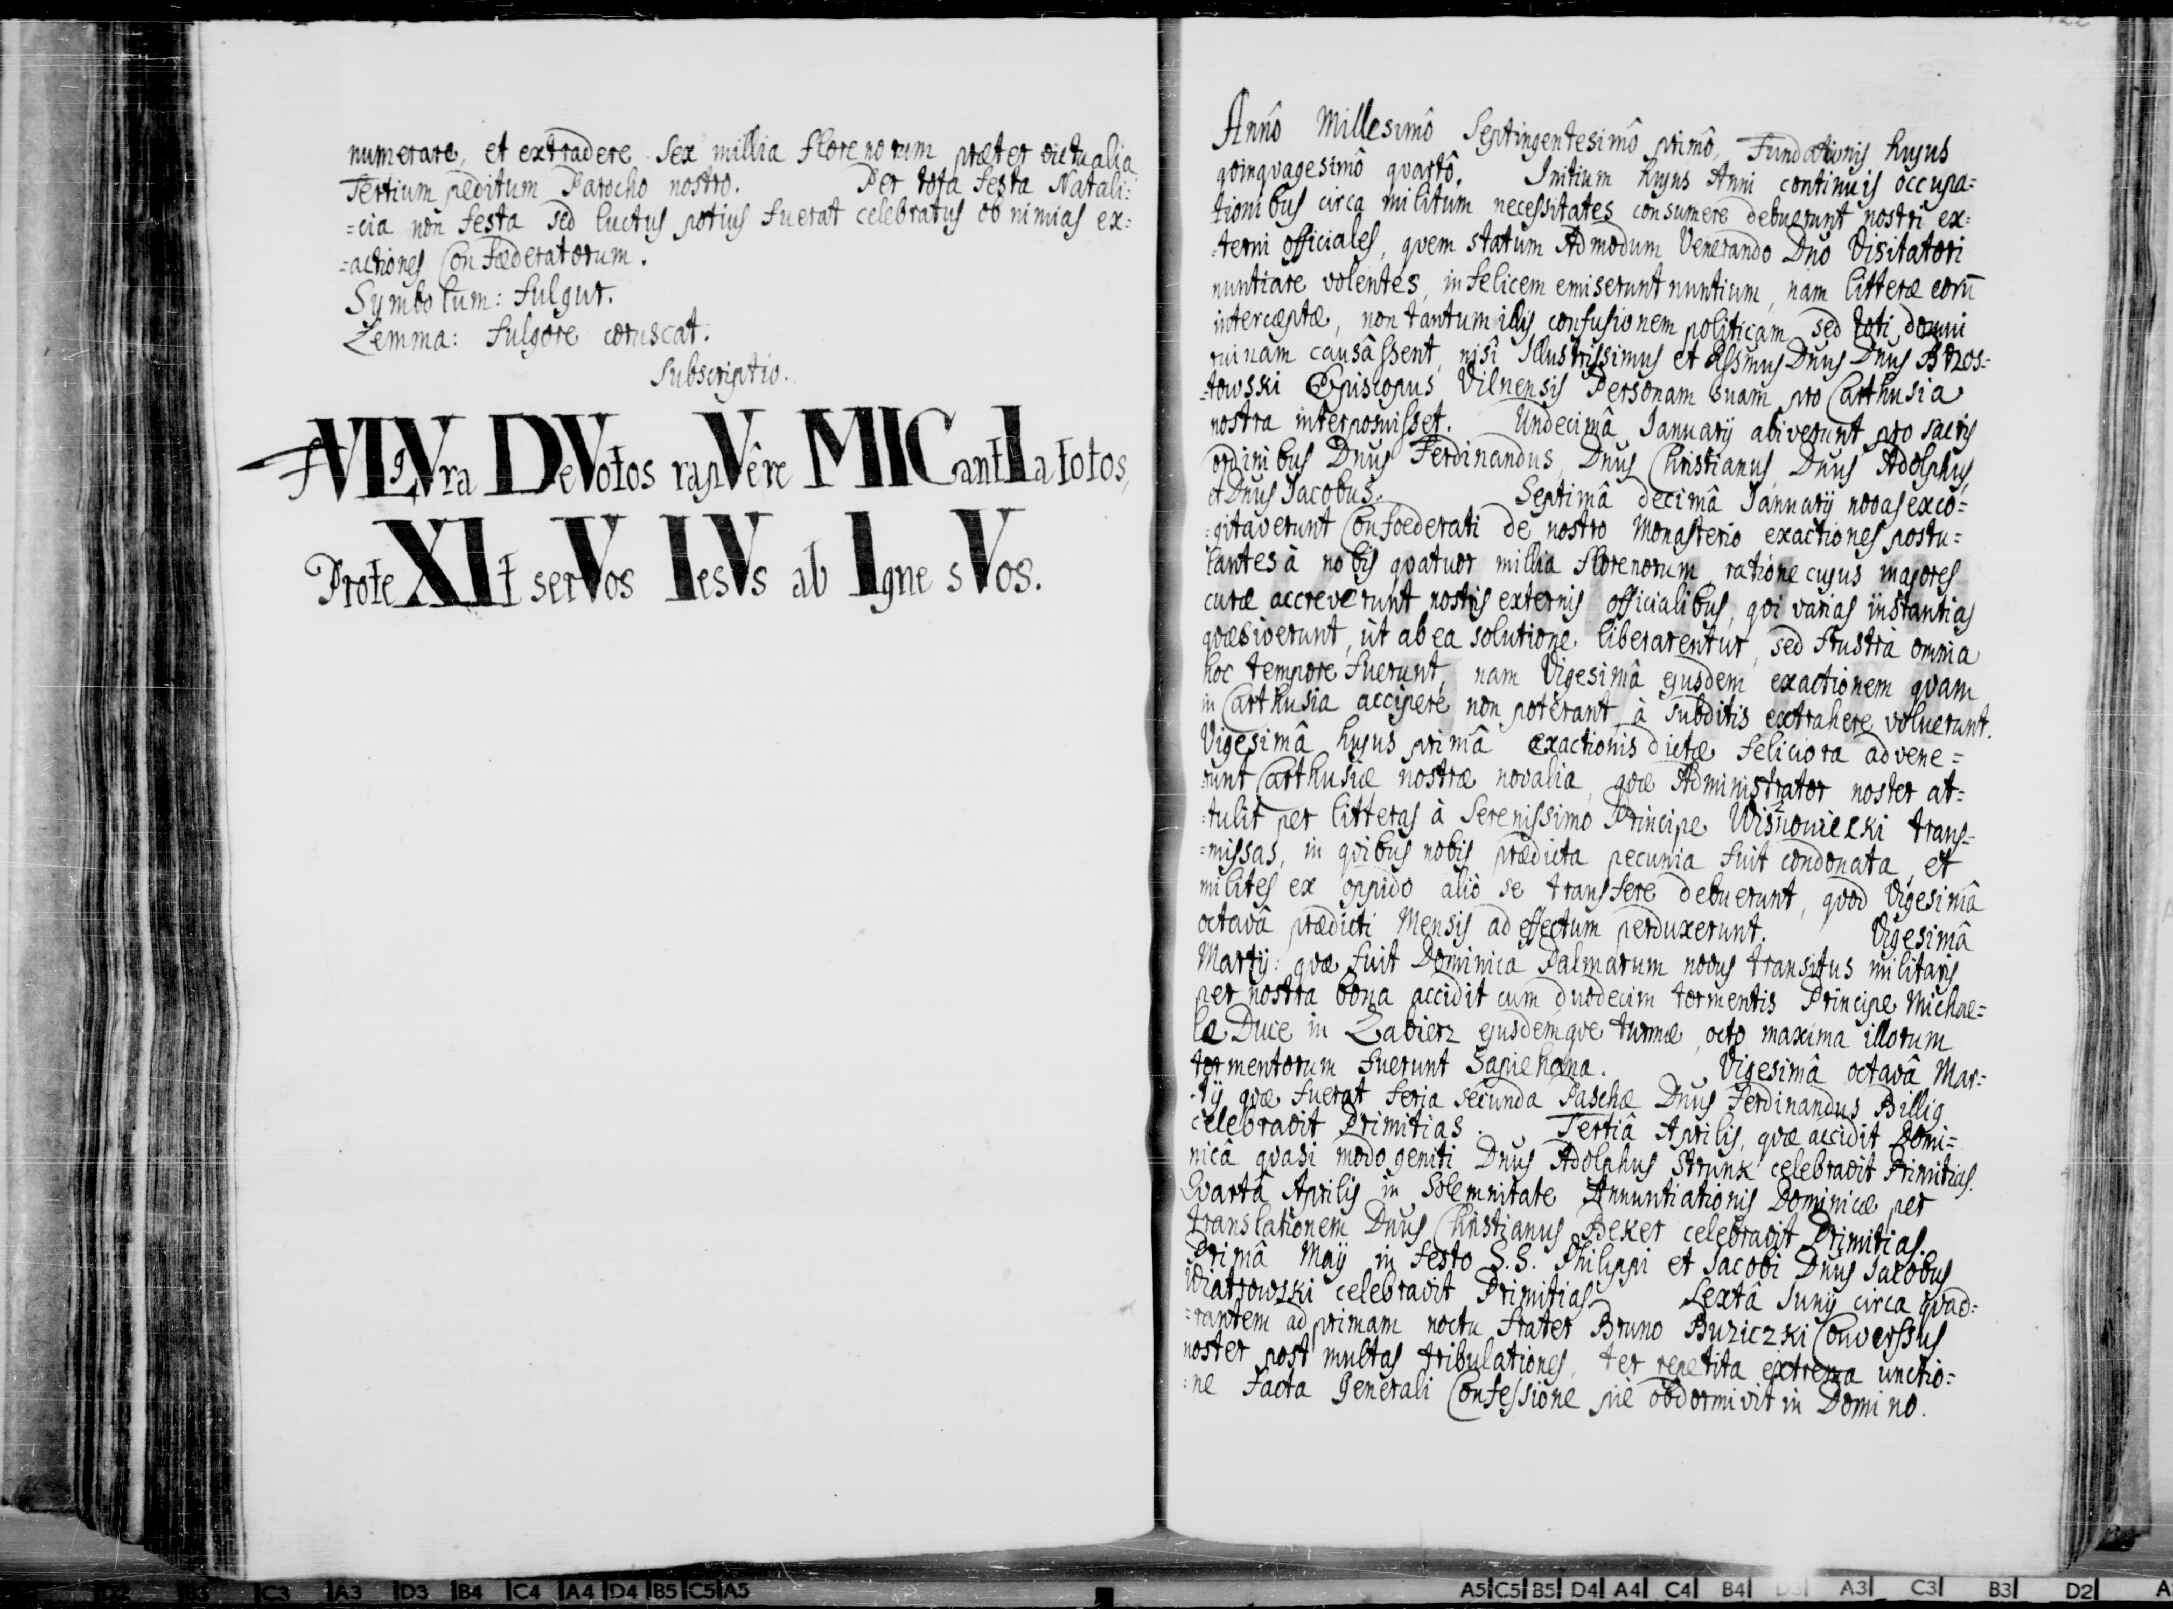 numerare, et extradere sex millia florenorum præter victualia
Tertium peditum Parocho nostro. Per tota festa Natali:
=cia non festa sed luctus potius fuerat celebratus ob nimias ex:
=actiones Confœderatorum.
Symbolum: fulgur.
Lemma: fulgore coruscat.
Subscriptio.
fVLgVra DeVotos rapVêre MICantIa totos,
ProteXIt serVos IesVs ab Igne sVos.
Annô Millesimô Septingentesimô primô, Fundationis hujus
qvinqvagesimô qvartô. Initium hujus Anni continuis occupa=
tionibus circa militum necessitates consumere debuerunt nostri ex=
=terni officiales, qvem statum Admodum Venerando Dno Visitatori
nuntiare volentes, infelicem emiserunt nuntium, nam litteræ eorū
interceptæ, non tantum illis confusionem politicam sed toti domui
ruinam causâssent, nisi Illustrissimus et Rssmus Dnus Dnus Brzos=
=towski Episcopus Vilnensis Personam suam pro Carthusia
nostra interposuisset. Undecimâ Januarij abiverunt pro sacris
ordinibus Dnus Ferdinandus, Dnus Christianus, Dnus Adolphus,
et Dnus Jacobus. Septimâ decimâ Januarij novas exco=
=gitaverunt Confoederati de nostro Monasterio exactiones postu=
lantes à nobis qvatuor millia florenorum, ratione cujus majores
curæ accreverunt nostris externis officialibus, qvi varias instantias
qvæsiverunt, ut ab ea solutione liberarentur, sed frustra omnia
hoc tempore fuerunt, nam Vigesimâ ejusdem exactionem qvam
in Carthusia accipere non poterant, à subditis extrahere voluerunt.
Vigesimâ hujus primâ exactionis dictæ feliciora advene=
=runt Carthusiæ nostræ novalia, qvæ Administrator noster at=
=tulit per litteras à Serenissimo Principe Wisnowiecki trans=
=missas, in qvibus nobis prædicta pecunia fuit condonata, et
milites ex oppido aliò se transfere debuerunt, qvod Vigesimâ
octavâ prædicti Mensis ad effectum perduxerunt. Vigesimâ
Martij: qvæ fuit Dominica Palmarum novus transitus militaris
per nostra bona accidit cum duodecim tormentis Principe Michae=
le Duce in Zabierz ejusdemqve turmæ, octo maxima illorum
tormentorum fuerunt Sapiehana. Vigesimâ octavâ Mar=
=tij qvæ fuerat feria secunda Paschæ Dnus Ferdinandus Billig
celebravit Primitias. Tertiâ Aprilis, qvæ accidit Domi=
nicâ qvasi modo geniti Dnus Adolphus Strunk celebravit Primitias.
Qvartâ Aprilis in Solemnitate Annuntiationis Dominicæ per
translationem Dnus Christianus Beker celebravit Primitias.
Primâ Maij in festo S.S. Philippi et Jacobi Dnus Jacobus
Wiatrowski celebravit Primitias. Sextâ Junij circa qvad=
=rantem ad primam noctu frater Bruno Buziczki Converssus
noster post multas tribulationes, ter repetita extrema unctio=
=ne facta Generali Confessione piè obdormivit in Domino.